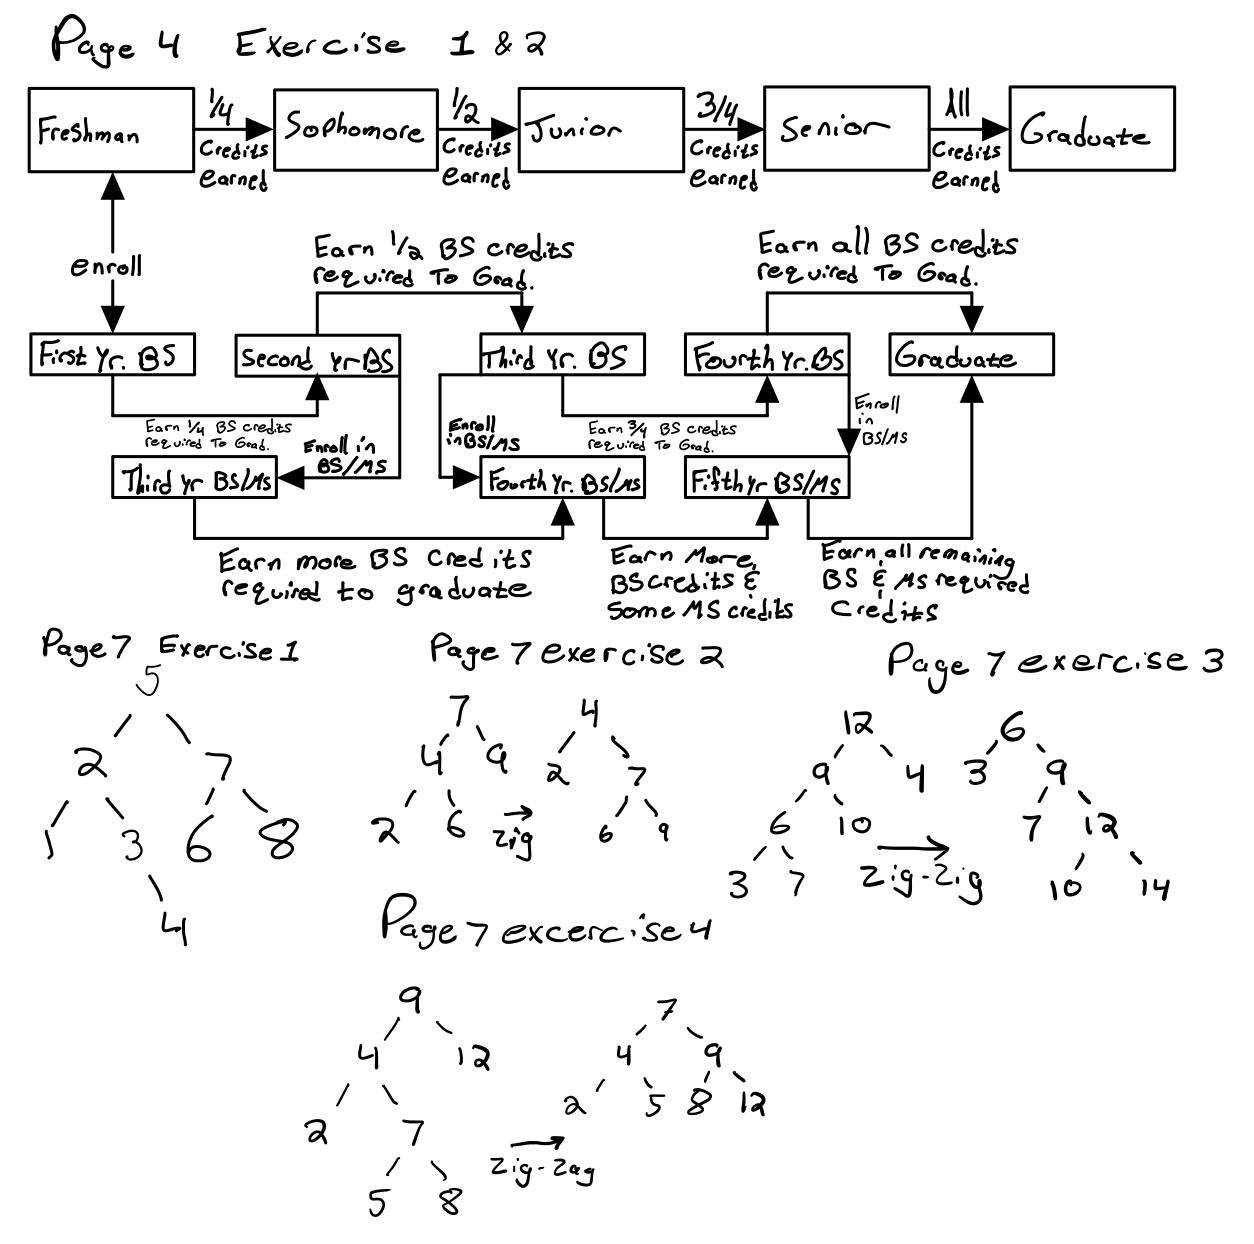 Page 4 Exercise 1 & 2
Freshman
1/4
Credits
earned
Sophomore
1/2
Credits
earned
Junior
3/4
Credits
earned
Senior
All
Credits
earned
Graduate
enroll
Earn 1/2 BS credits
required To Grad.
Earn all BS credits
required To Grad.
First Yr. BS
Second yr BS
Third Yr. BS
Fourth Yr. BS
Graduate
Earn 1/4 BS credits
required To Grad.
Enroll in
BS/MS
Enroll
in BS/MS
Earn 3/4 BS credits
required To Grad.
Enroll
in
BS/MS
Third yr BS/MS
Fourth Yr. BS/MS
Fifth yr BS/MS
Earn more BS Credits
required to graduate
Earn More
BS credits &
Some MS credits
Earn all remaining
BS & MS required
Credits
Page 7 Exercise 1
5
2 7
1 3 6 8
4
Page 7 exercise 2
7
4 9
2 6
zig
4
2 7
6 9
Page 7 exercise 3
12
9 4
6 10
3 7
Zig-Zig
6
3 9
7 12
10 14
Page 7 excercise 4
9
4 12
2 7
5 8
Zig-Zag
7
4 9
2 5 8 12